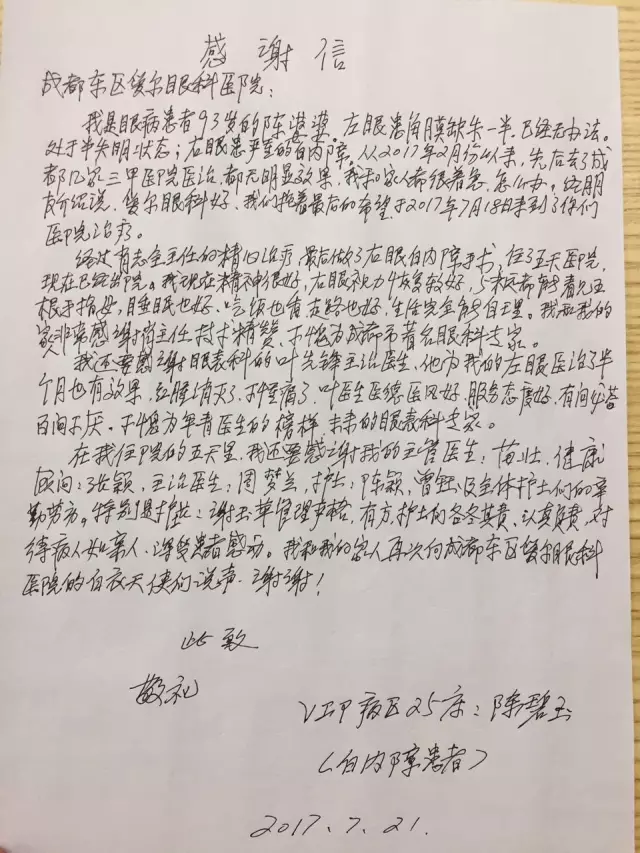 感谢信
成都东区爱尔眼科医院：
我是眼病患者93岁的陈婆婆，左眼患角膜缺失一半，已经无办法。
处于半失明状态；右眼患严重的白内障。从2017年2月份以来，先后去了成
都几家三甲医院医治，都无明显效果，我和家人都很着急，怎么办。经朋
友介绍说，爱尔眼科好，我们抱着最后的希望于2017年7月18日来到了你们
医院治疗。
经过肖志金主任的精心治疗，最后做了右眼白内障手术，住了五天医院，
现在已经出院。我现在精神很好，右眼视力恢复较好，5米远都能看见五
根手指姆，睡眠也好，吃饭也香，走路也好，生活完全能自理。我和我的
家人非常感谢肖主任，技术精赞，不愧为成都市著名眼科专家。
我还要感谢眼表科的叶先锋主治医生，他为我的左眼医治了半
个月也有效果，红肿消灭了，不疼痛了，叶医生医德医风好，服务态度好，有问必答
百问不厌。不愧为年青医生的榜样，未来的眼表科专家。
在我住院的五天里，我还要感谢我的主管医生：苗壮、健康
顾问：张颖，主治医生：周梦兰，护士：陈颖，曾钰以及全体护士们的辛
勤劳动。特别是护长：谢玉华管理严格，有方，护士们各尽其责，认真负责，对
待病人如亲人，深受患者感动。我和我的家人再次向成都东区爱尔眼科
医院的白衣天使们说声：谢谢！
此致
敬礼
VIP病区25床：陈碧玉
（白内障患者）
2017.7.21.